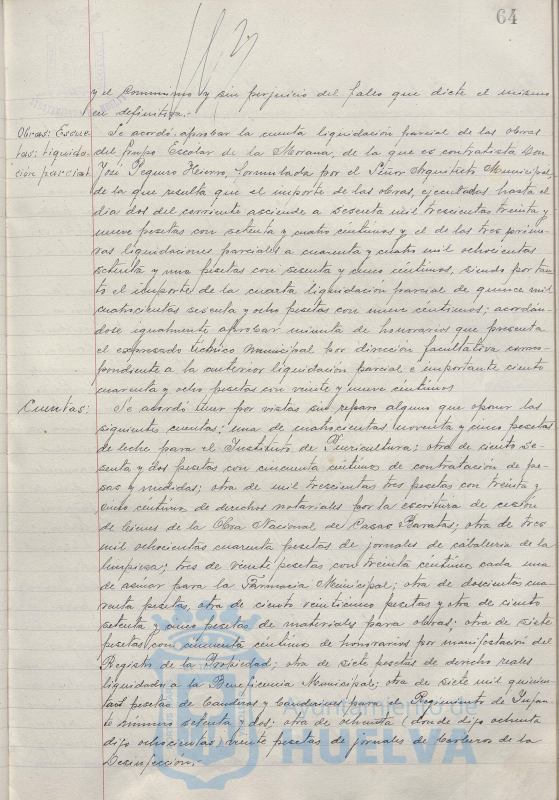 64
y el Comunismo y sin perjuicio del fallo que dicte el mismo
en definitiva.-
Obras: Escue-
las: liquida-
ción parcial.
Se acordó aprobar la cuenta liquidación parcial de las obras
del Grupo Escolar de la Morana, de la que es contratista Don
José Peguro Hierro, formulada por el Señor Arquitecto Municipal,
de la que resulta que el importe de las obras, ejecutadas hasta el
dia dos del corriente asciende a sesenta mil trescientas treinta y
nueve pesetas con setenta y cuatro centimos y el de las tres prime-
ras liquidaciones parciales a cuarenta y cuatro mil ochocientas
setenta y una pesetas con sesenta y cinco centimos, siendo por tan-
to el importe de la cuarta liquidación parcial de quince mil
cuatrocientas sesenta y ocho pesetas con nueve céntimos; acordán-
dose igualmente aprobar minuta de honorarios que presenta
el expresado técnico municipal por dirección facultativa corres-
pondiente a la anterior liquidación parcial e importante ciento
cuarenta y ocho pesetas con veinte y nueve centimos
Cuentas:
Se acordó tener por vistas sin reparo alguno que oponer las
siguientes cuentas; una de cuatrocientas noventa y cinco pesetas
de leche para el Instituto de Puericultura; otra de ciento se-
senta y dos pesetas con cincuenta centimos de contratacion de pe-
sas y medidas; otra de mil trescientas tres pesetas con treinta y
cinco céntimos de derechos notariales por la escritura de cesión
de bienes de la Obra Nacional de Casas Baratas; otra de tres
mil ochocientas cuarenta pesetas de jornales de caballeria de la
limpieza; tres de veinte pesetas con treinta centimos cada una
de azucar para la Farmacia Municipal; otra de doscientas cua-
renta pesetas, otra de ciento veinticinco pesetas y otra de ciento
setenta y cinco pesetas de materiales para obras; otra de siete
pesetas con cincuenta céntimos de honorarios por manifestación del
Registro de la Propiedad; otra de siete pesetas de derecho reales
liquidado a la Beneficencia Municipal; otra de siete mil quinien-
tas pesetas de Banderas y banderines para el Regimiento de Infan-
te número setenta y dos; otra de ochenta (donde dijo ochenta
dijo ochocientas) veinte pesetas de jornales de barberos de la
Desinfeccion.-
Ayuntamiento de
HUELVA